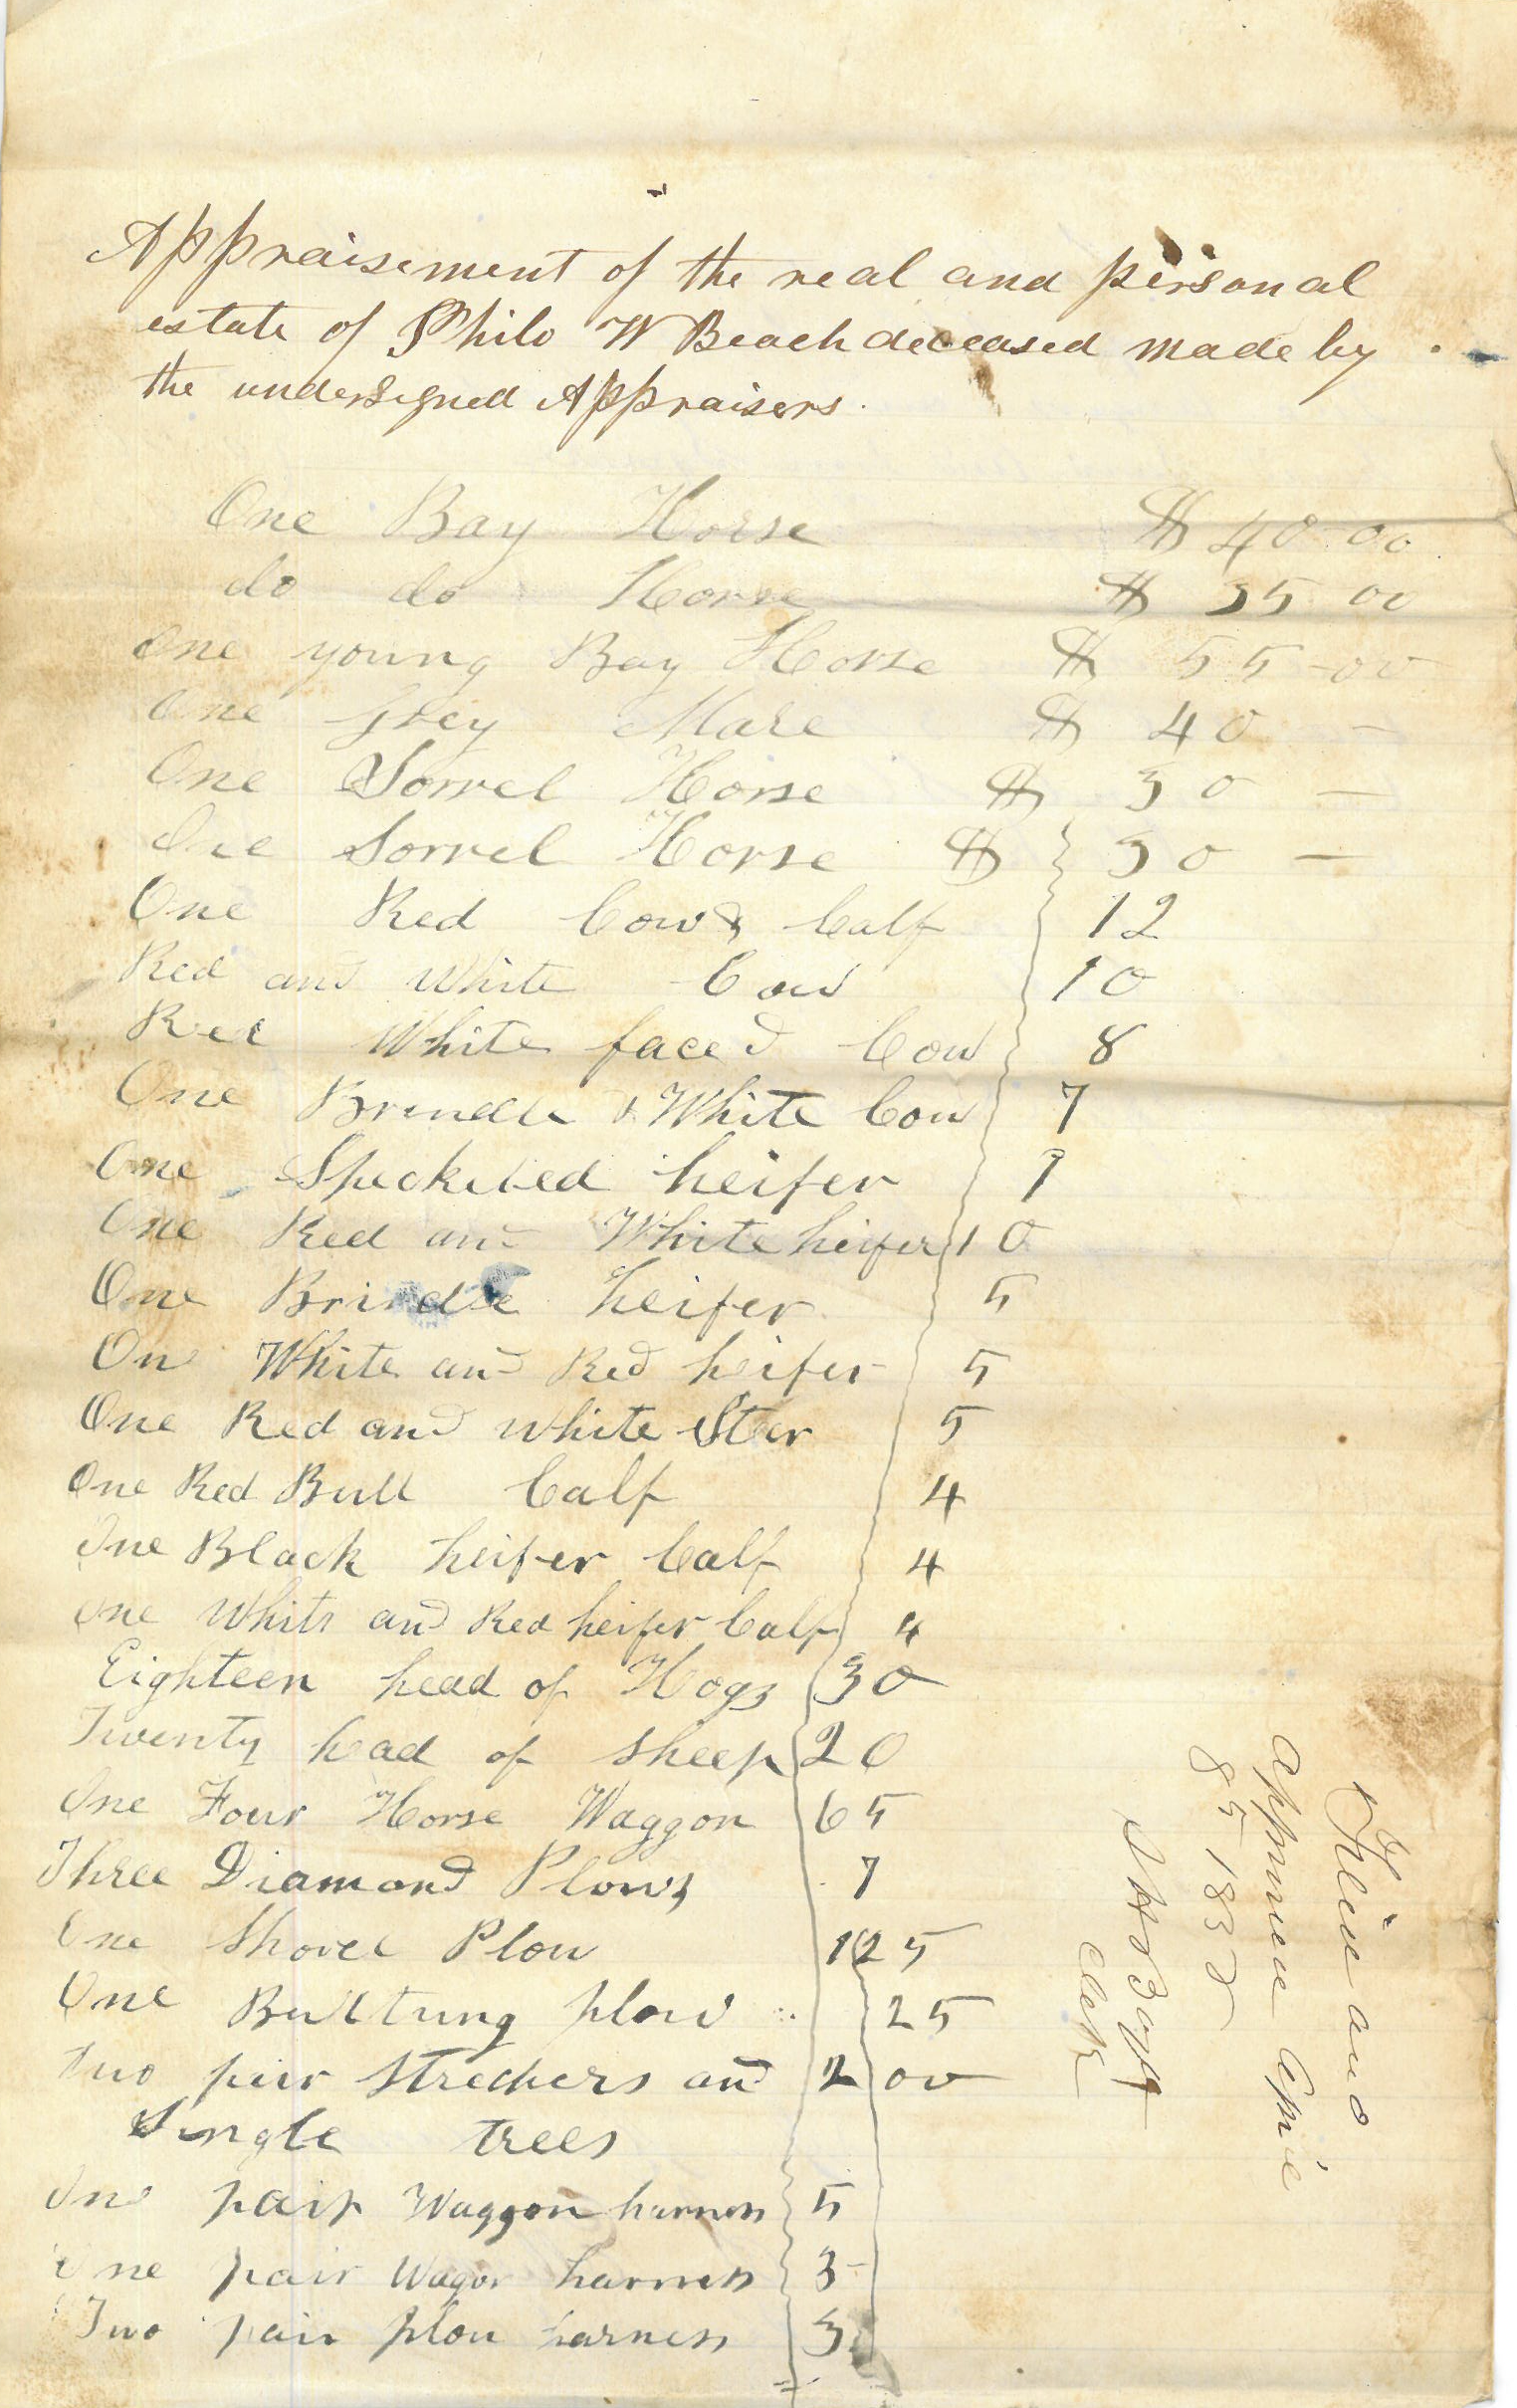 Appraisement of the real and personal
estate of Philo W Beach deceased made by
the undersigned Appraisers.
One Bay Horse $ 40-00
do do Horse $ 35 00
One young Bay Horse $ 55-00
One Grey Mare $ 40 -
One Sorrel Horse $ 30 -
One Sorrel Horse $ 30 -
One Red Cow & Calf 12
Red and White Cow 10
Red White faced Cow 8
One Brindle & White Cow 7
One Speckeled heifer
One Red and White heifer 10
One Brindle heifer 5
On White and Red heifer 5
One Red and White Steer 5
One Red Bull Calf 4
One Black heifer Calf 4
One White and Red heifer Calf 4
Eighteen head of Hogs 30
Twenty head of Sheep 20
One Four Horse Waggon 65
Three Diamond Plows 7
One Shovel Plow 1 25
One plow 25
Two pair Strechers and 2 00
Single trees
One pair Waggon harness 5
One pair Wagon harness 3-
Two pair plow harness 3
Filed and
approved
Clerk